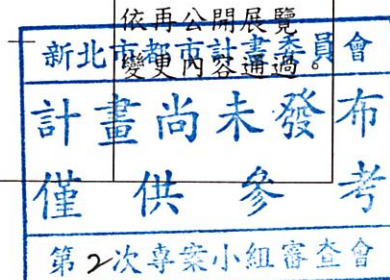 依再公開展覽
變更內容通過。
新北市都市計畫委員會
計畫尚未發布
僅供參考
第2次專案小組審查會